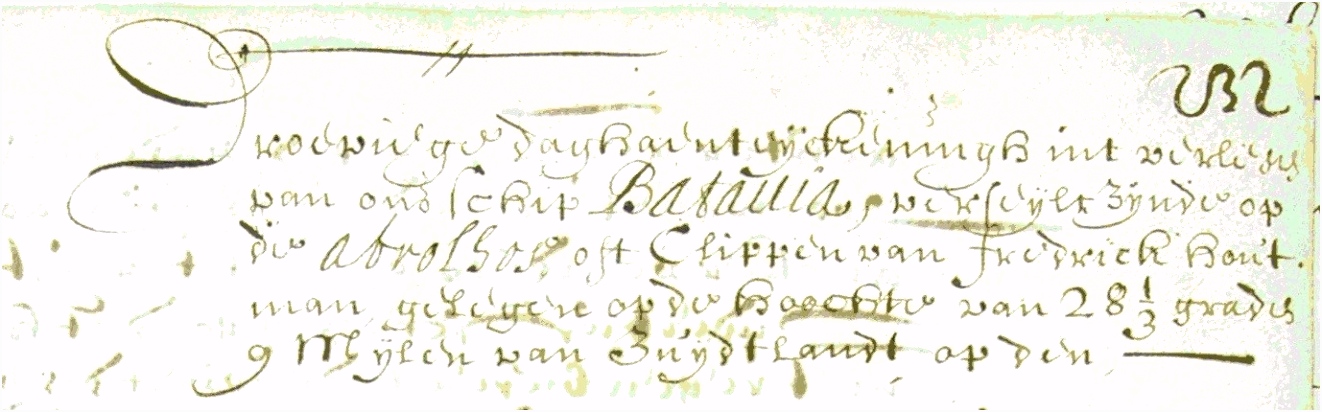 232
Droevige daghaenteyckeningh int verlies
van ons schip Batavia, verseylt zynde op
de abrolhos oft Clippen van fredrick hout.
man, gelegen op de hoochte van 28 1/3 graden
9 Mylen van Zuydtlandt op den